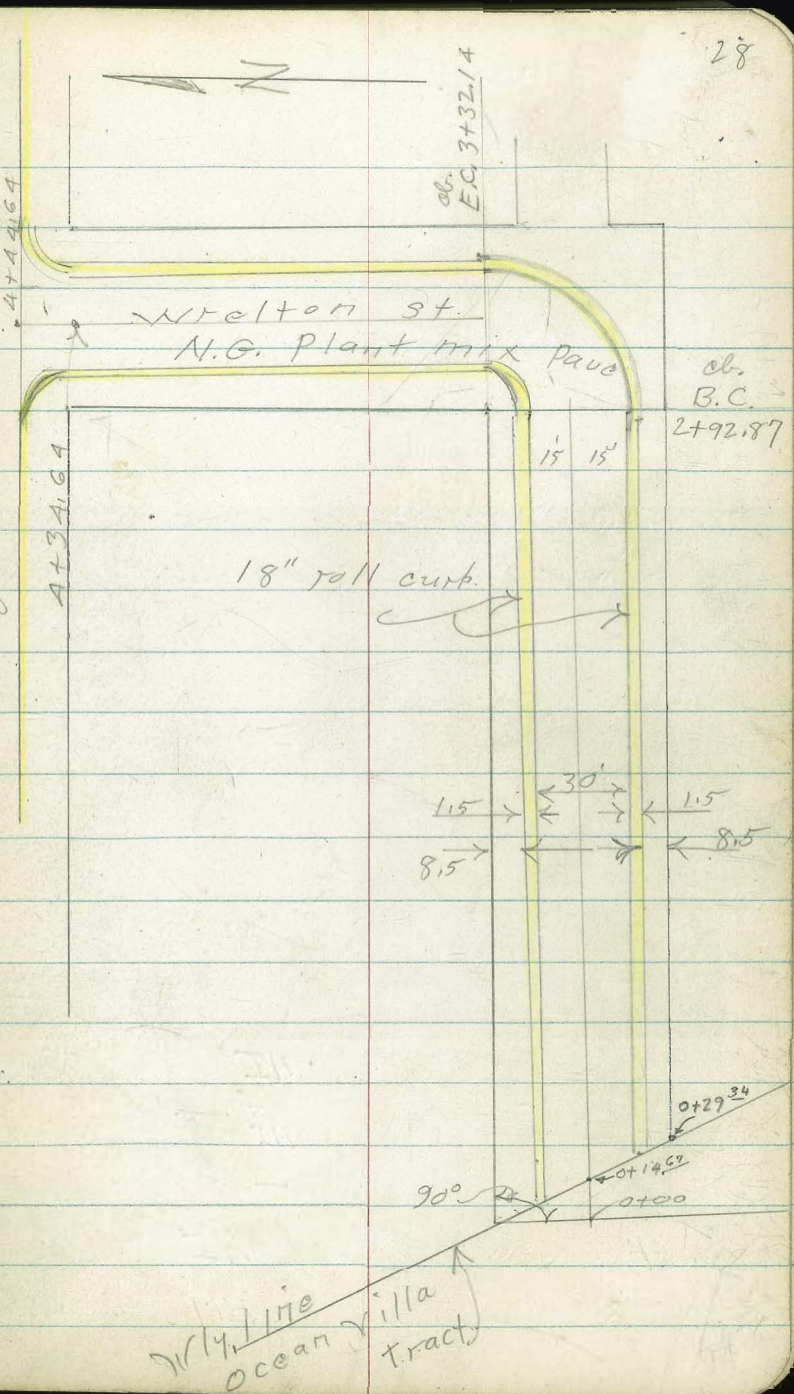 28
N
cb.
E.C. 3+32.14
4+44.64
Wrelton st.
N.G. Plant mix Pave
cb.
B.C.
2+92.87
15' 15'
4+34.64
18" roll curb.
30'
1.5 1.5
8.5 8.5
0+29.34
0+14.67
90°
0+00
W'ly. line
Ocean Villa
tract